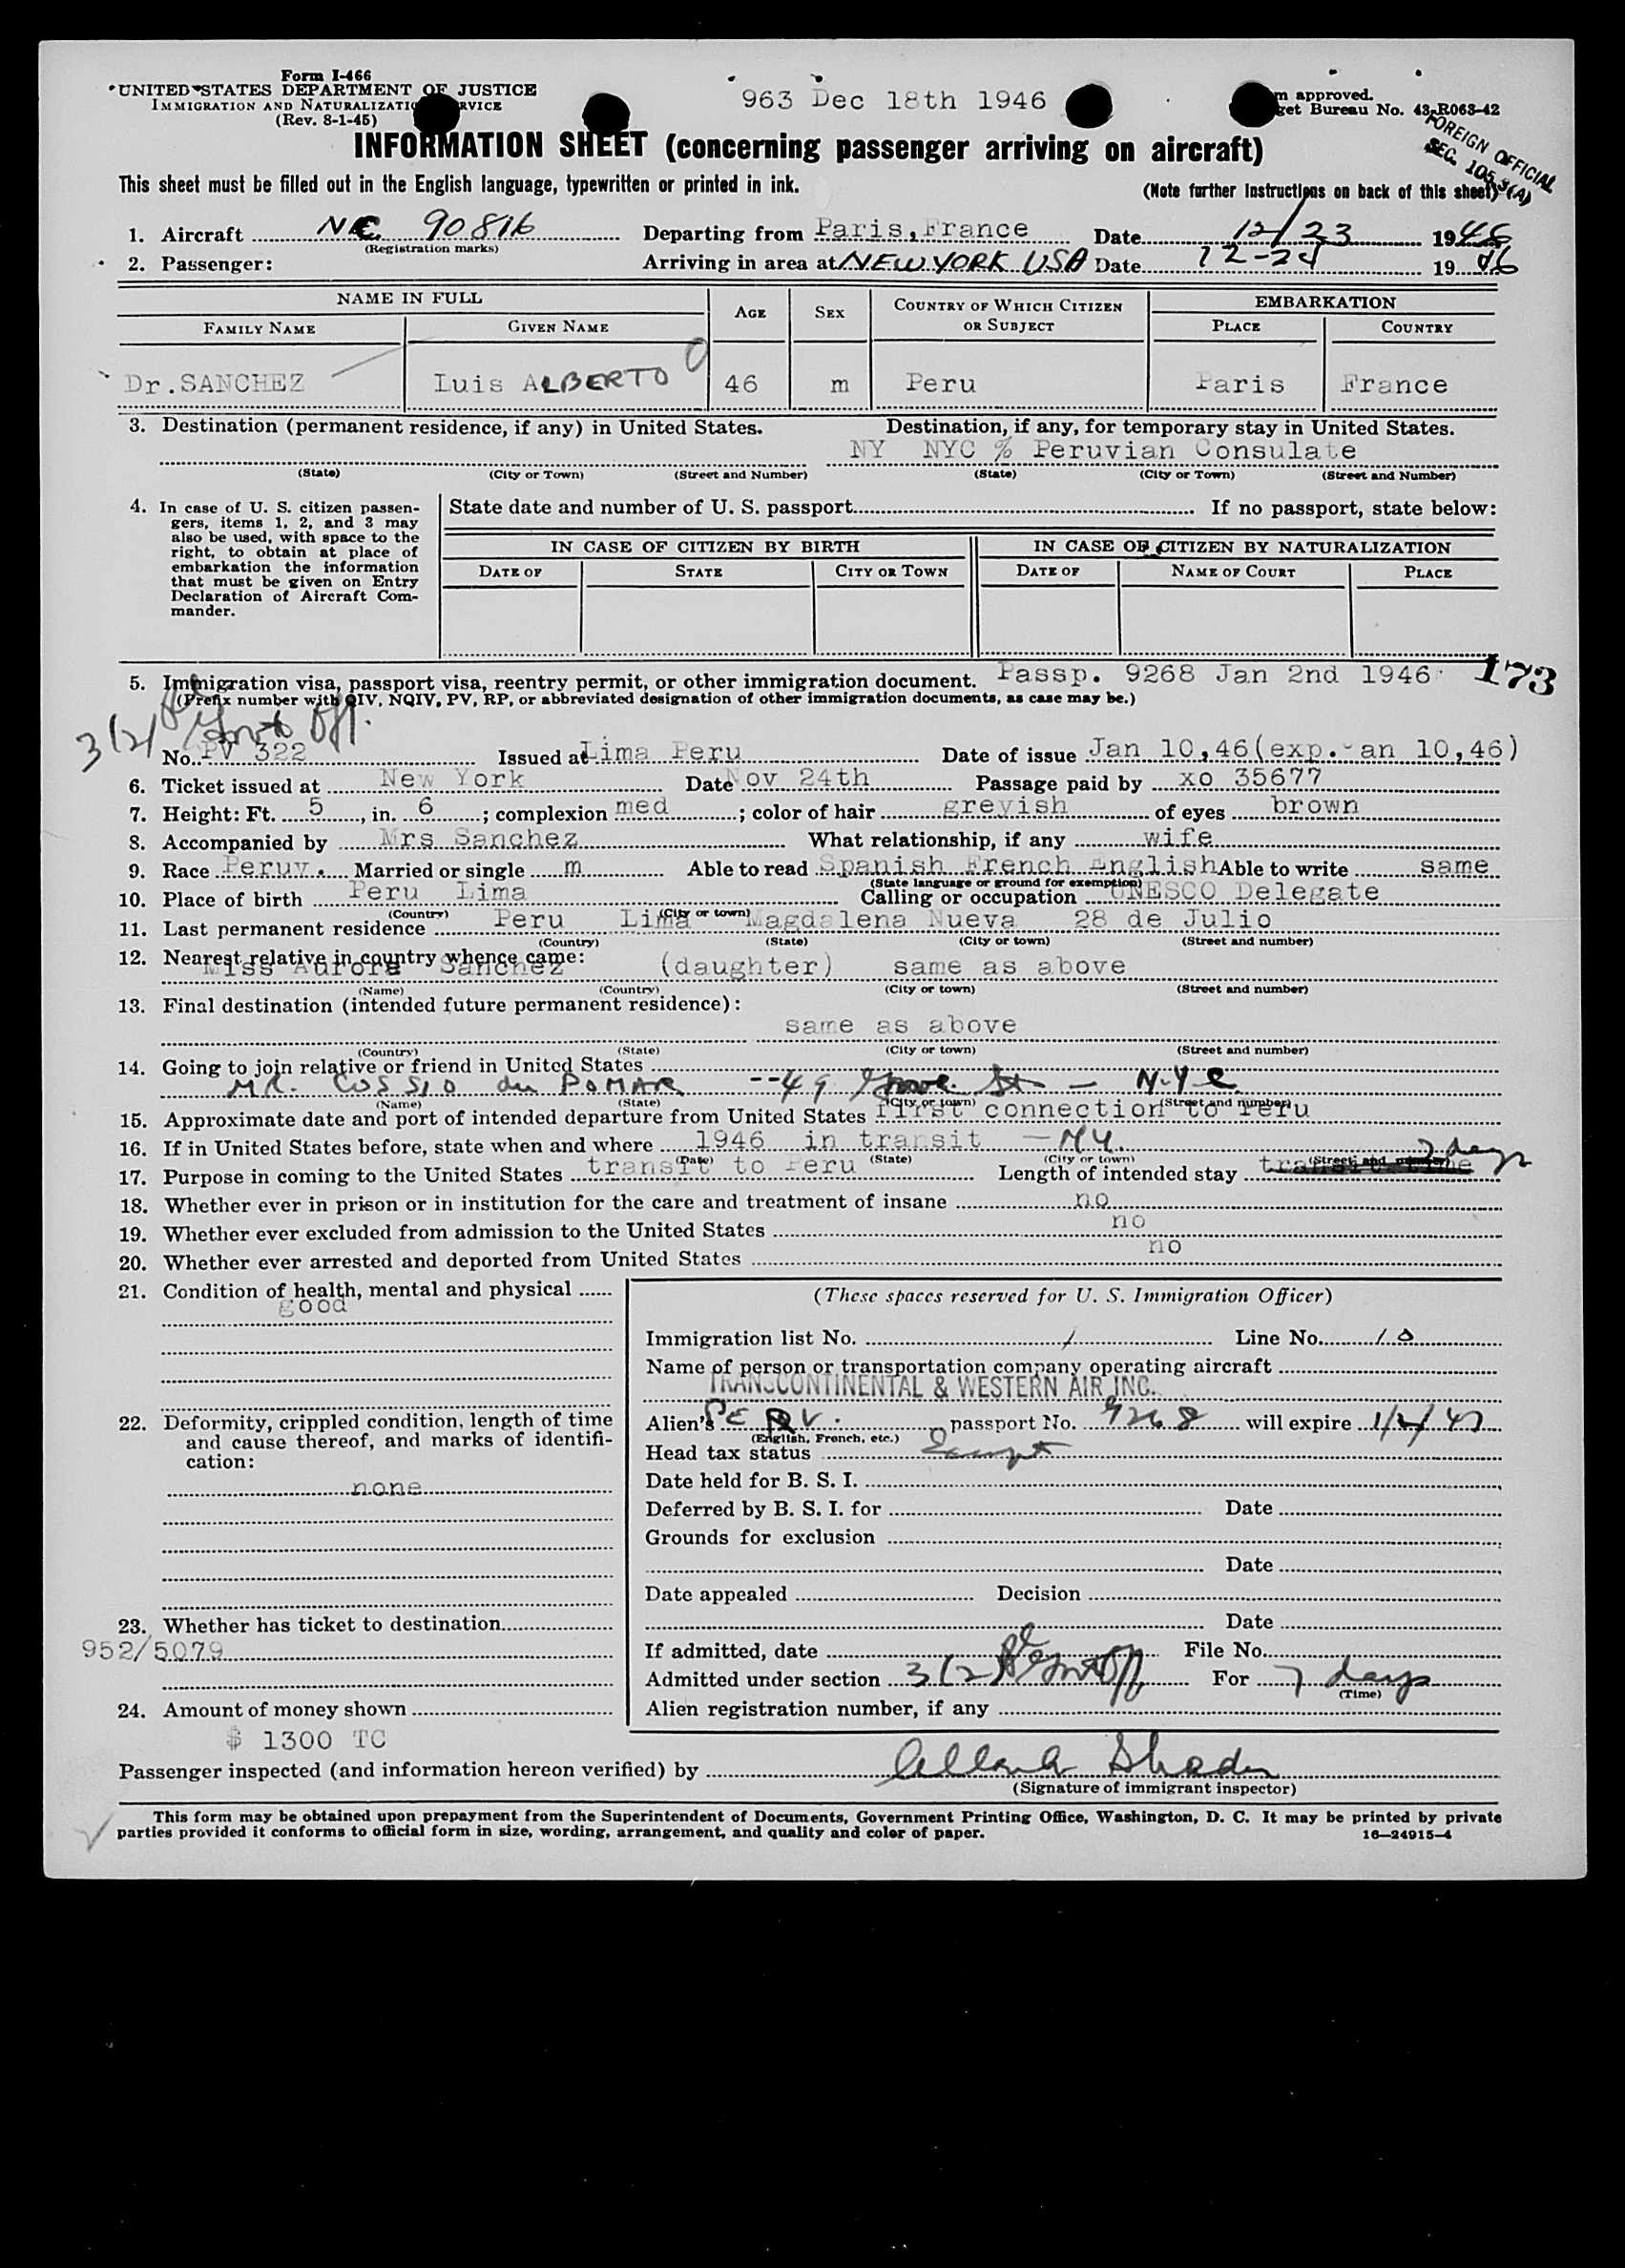 Form I-466
UNITED STATES DEPARTMENT OF JUSTICE
IMMIGRATION AND NATURALIZATIO RVICE
(Rev. 8-1-45)
963 Dec 18th 1946
m approved.
get Bureau No. 43-R063-42
FOREIGN OFFICIAL
SEC. 105.3(A)
INFORMATION SHEET (concerning passenger arriving on aircraft)
This sheet must be filled out in the English language, typewritten or printed in ink.
(Note further instructions on back of this sheet)
1. Aircraft NC 90816 Departing from Paris, France Date 12/23 1946
(Registration marks)
2. Passenger: Arriving in area at NEW YORK USA Date 12-24 1946
NAME IN FULL AGE SEX COUNTRY OF WHICH CITIZEN OR SUBJECT EMBARKATION
FAMILY NAME GIVEN NAME PLACE COUNTRY
Dr. SANCHEZ Luis ALBERTO 46 m Peru Paris France
3. Destination (permanent residence, if any) in United States. Destination, if any, for temporary stay in United States.
NY NYC % Peruvian Consulate
(State) (City or Town) (Street and Number) (State) (City or Town) (Street and Number)
4. In case of U. S. citizen passen-
gers, items 1, 2, and 3 may
also be used, with space to the
right, to obtain at place of
embarkation the information
that must be given on Entry
Declaration of Aircraft Com-
mander.
State date and number of U. S. passport If no passport, state below:
IN CASE OF CITIZEN BY BIRTH IN CASE OF CITIZEN BY NATURALIZATION
DATE OF STATE CITY OR TOWN DATE OF NAME OF COURT PLACE
5. Immigration visa, passport visa, reentry permit, or other immigration document. Passp. 9268 Jan 2nd 1946 173
(Prefix number with QIV, NQIV, PV, RP, or abbreviated designation of other immigration documents, as case may be.)
3(2) Off.
No. PV 322 Issued at Lima Peru Date of issue Jan 10,46(exp. an 10,46)
6. Ticket issued at New York Date Nov 24th Passage paid by xo 35677
7. Height: Ft. 5, in. 6; complexion med; color of hair greyish of eyes brown
8. Accompanied by Mrs Sanchez What relationship, if any wife
9. Race Peruv. Married or single m Able to read Spanish French English Able to write same
(State language or ground for exemption)
10. Place of birth Peru Lima Calling or occupation UNESCO Delegate
(Country) (City or town)
11. Last permanent residence Peru Lima Magdalena Nueva 28 de Julio
(Country) (State) (City or town) (Street and number)
12. Nearest relative in country whence came:
Miss Aurora Sanchez (daughter) same as above
(Name) (Country) (City or town) (Street and number)
13. Final destination (intended future permanent residence):
same as above
(Country) (State) (City or town) (Street and number)
14. Going to join relative or friend in United States
MR. COSSIO du POMAR -- 49 Grove St - N.Y.C.
(Name) (State) (City or town) (Street and number)
15. Approximate date and port of intended departure from United States first connection to Peru
16. If in United States before, state when and where 1946 in transit - NY.
(Date) (State) (City or town) (Street and number)
17. Purpose in coming to the United States transit to Peru Length of intended stay transit time 7 days
18. Whether ever in prison or in institution for the care and treatment of insane no
19. Whether ever excluded from admission to the United States no
20. Whether ever arrested and deported from United States no
21. Condition of health, mental and physical
good
(These spaces reserved for U. S. Immigration Officer)
Immigration list No. 1 Line No. 10
Name of person or transportation company operating aircraft
TRANSCONTINENTAL & WESTERN AIR INC.
22. Deformity, crippled condition, length of time
and cause thereof, and marks of identifi-
cation:
none
Alien's PERV. passport No. 9268 will expire 1/2/47
(English, French, etc.)
Head tax status Exempt
Date held for B. S. I.
Deferred by B. S. I. for Date
Grounds for exclusion
Date
Date appealed Decision
Date
23. Whether has ticket to destination
952/5079
If admitted, date File No.
Admitted under section 3(2) For 7 days
(Time)
24. Amount of money shown
$ 1300 TC
Alien registration number, if any
Passenger inspected (and information hereon verified) by
(Signature of immigrant inspector)
This form may be obtained upon prepayment from the Superintendent of Documents, Government Printing Office, Washington, D. C. It may be printed by private
parties provided it conforms to official form in size, wording, arrangement, and quality and color of paper. 16—24915-4